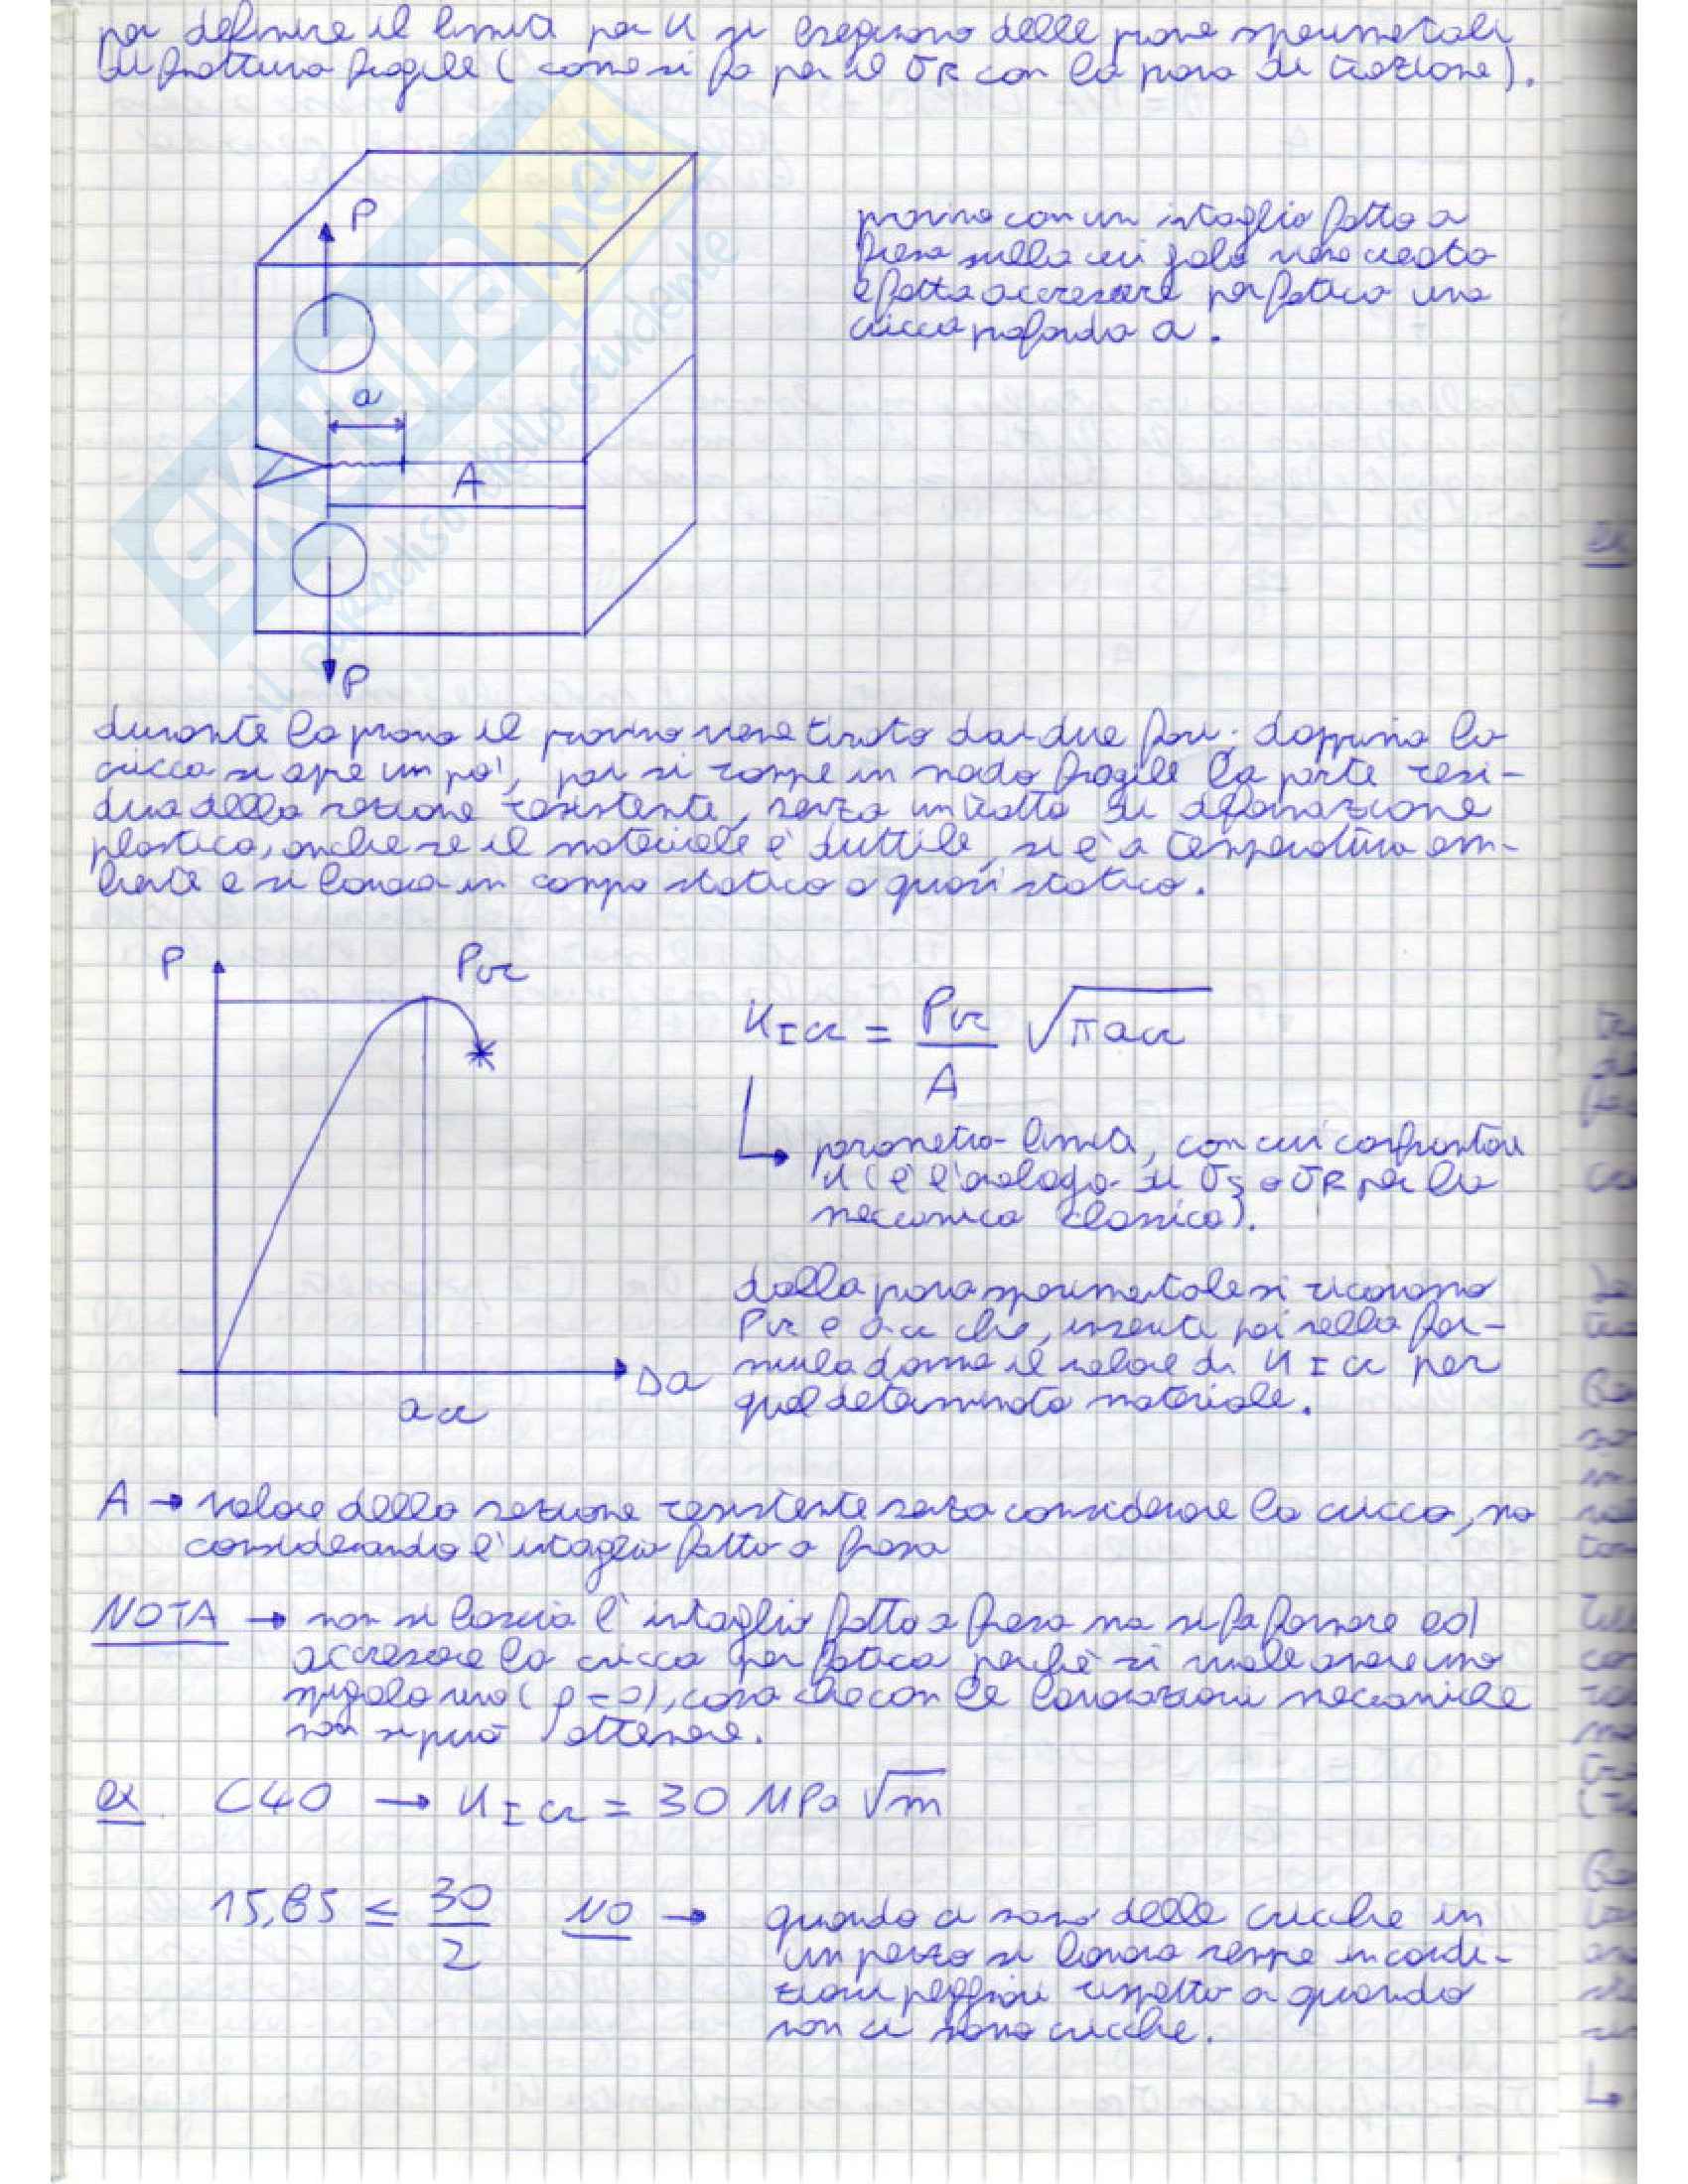 per definire il limite per K si eseguono delle prove sperimentali
di frattura fragile (come si fa per il σR con la prova di trazione).
P
provino con un intaglio fatto a
fresa sulla cui gola viene creata
e fatta accrescere per fatica una
cricca profonda a.
a
A
P
durante la prova il provino viene tirato dai due fori; dapprima la
cricca si apre un po', poi si rompe in modo fragile la parte resi-
dua della sezione resistente, senza un tratto di deformazione
plastica, anche se il materiale è duttile, si è a temperatura am-
biente e si lavora in campo statico o quasi statico.
P
Pcr
KIcr = Pcr/A √πacr
parametro limite, con cui confrontare
K (è l'analogo di σS o σR per la
meccanica classica).
dalla prova sperimentale si ricavano
Pcr e acr che, inseriti poi nella for-
mula danno il valore di KIcr per
quel determinato materiale.
Δa
acr
A → valore della sezione resistente senza considerare la cricca, ma
considerando l'intaglio fatto a fresa
NOTA → non si lascia l'intaglio fatto a fresa ma si fa formare ed
accrescere la cricca per fatica perché si vuole avere uno
spigolo vivo (ρ=0), cosa che con le lavorazioni meccaniche
non si può ottenere.
ex. C40 → KIcr = 30 MPa √m
15,85 ≤ 30/2 NO → quando ci sono delle cricche in
un pezzo si lavora sempre in condi-
zioni peggiori rispetto a quando
non ci sono cricche.
SKUOLA.net
il paradiso dello studente